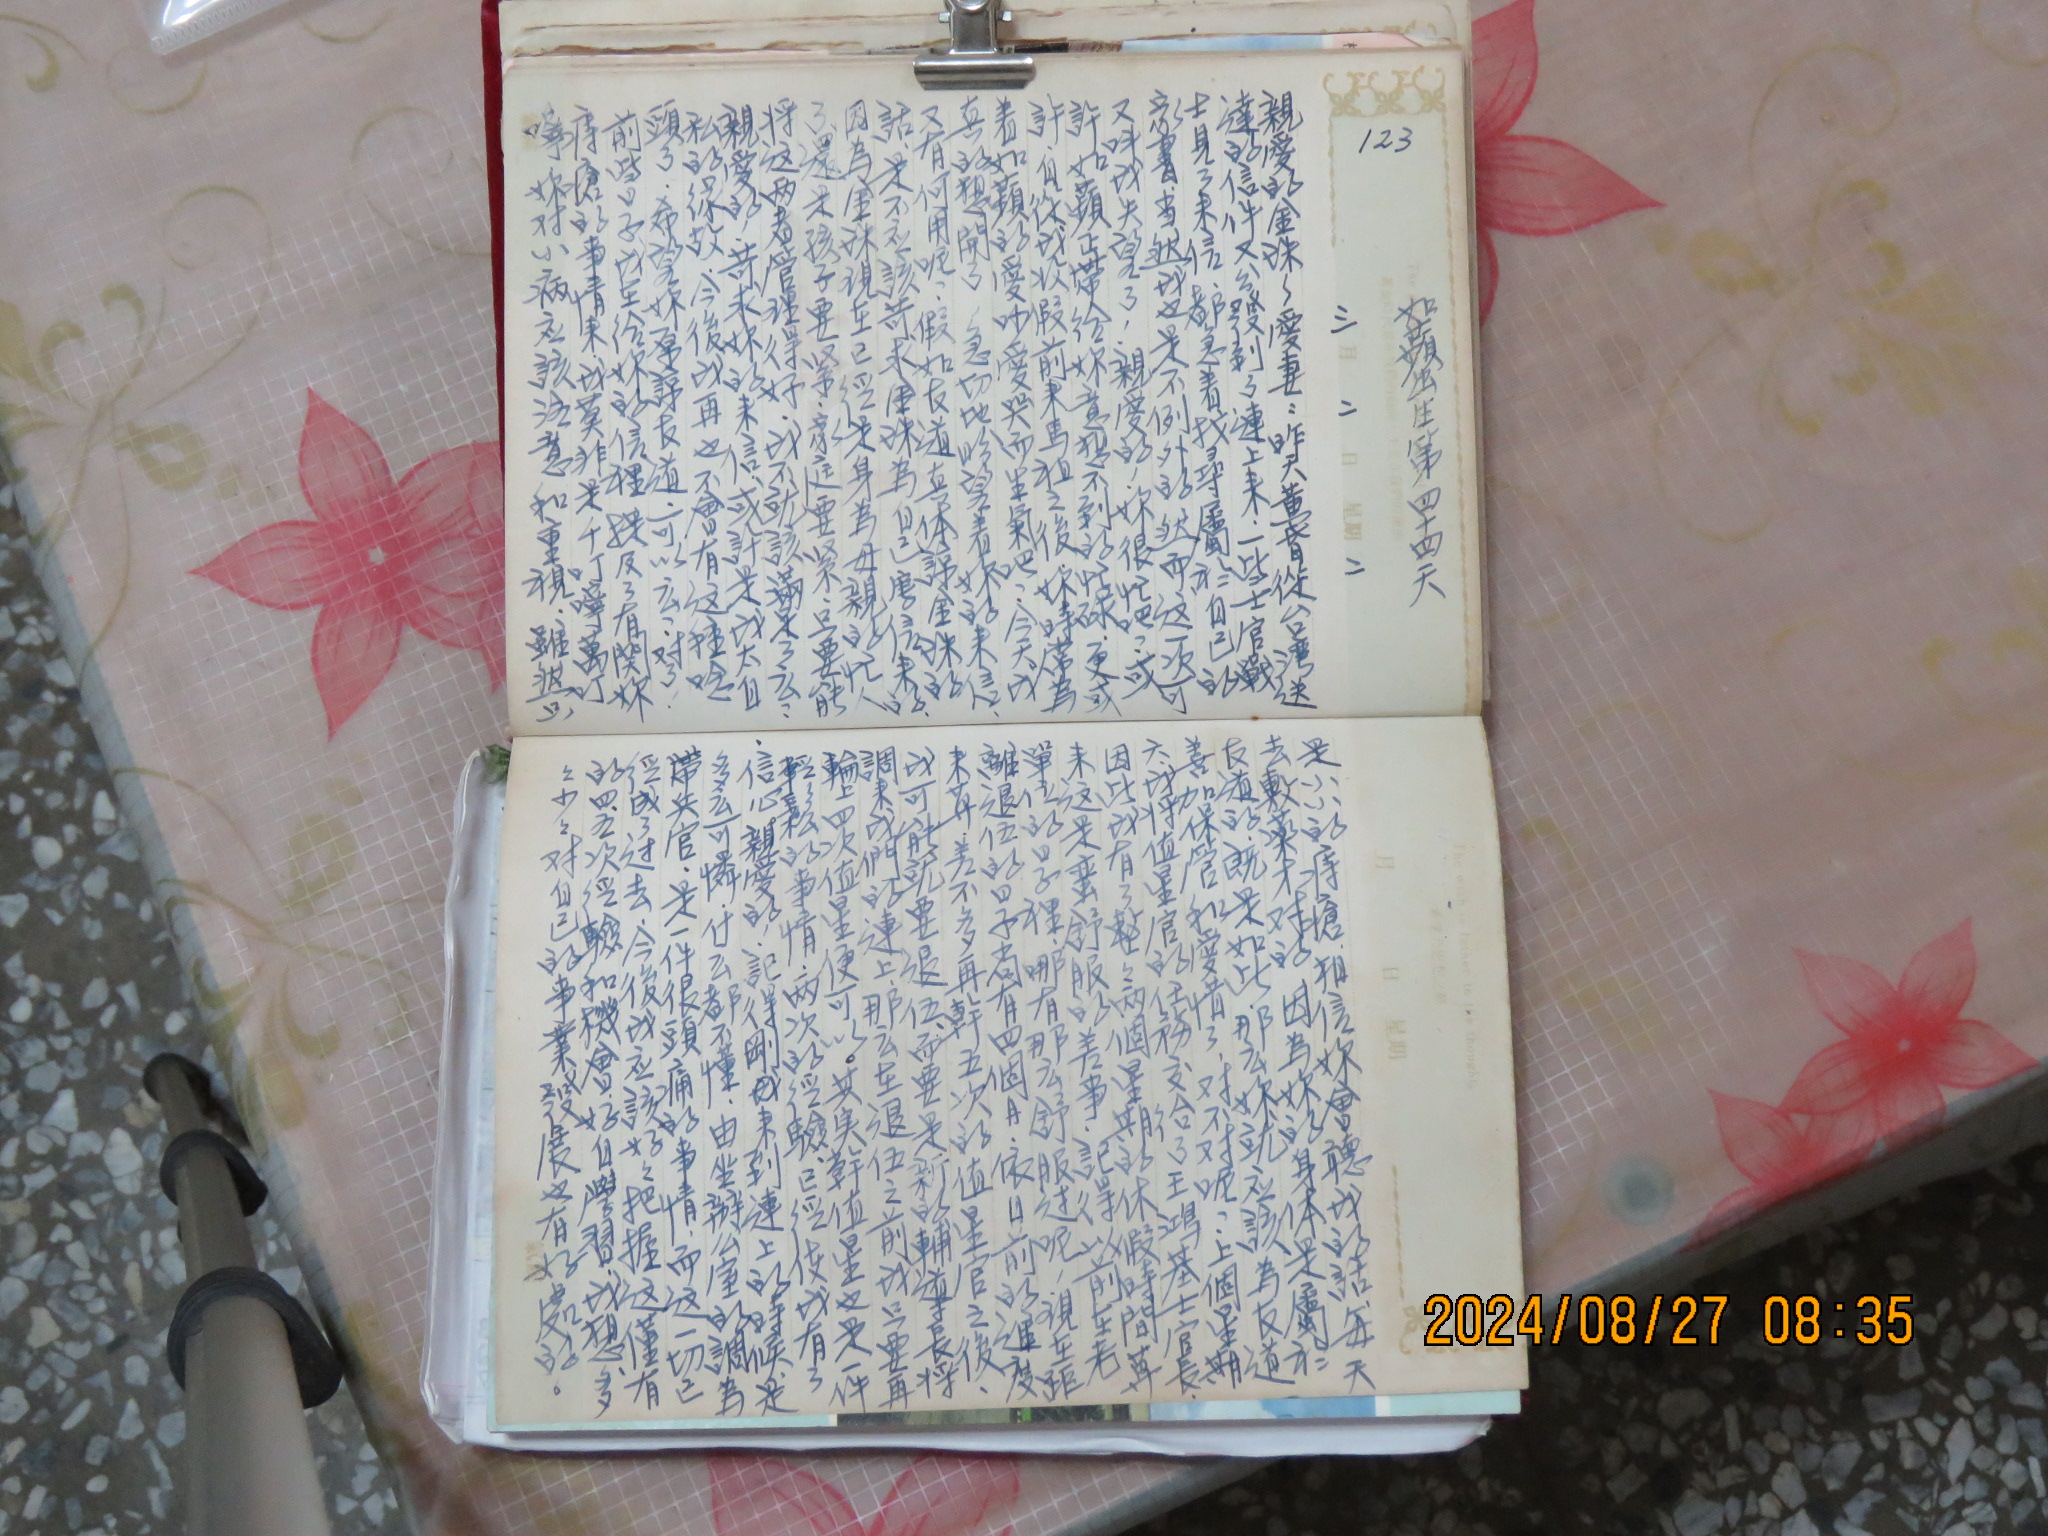 123
如蘋出庄第四十四天
三月二日星期二
親愛的金珠~愛妻：昨天黃昏從台灣送
達的信件又公發到了連上來，一些士官戰
士見了來信，都急着找尋屬於自己的
家書，当然我也是不例外的，然而這一次可
又叫我失望了，親愛的，妳很忙吧？或
許如蘋正帶給妳意想不到的忙碌，更或
許自從我收假前來馬祖之後，妳時常為
着如蘋的愛吵愛哭而生氣吧？今天，我
真的想開了，急切地盼望着妳的來信，
又有何用呢？假如友道真体諒金珠的
話，是不应該苛求金珠為自己磨信來的，
因為金珠現在已經是身為母親的忙人
了，還是孩子要緊，家庭要緊，只要能
将這兩者管理得好，我不就該滿足了么？
親愛的，苛求妳的來信，或許是我太自
私的緣故，今後我再也不會有這種唸
頭了，希望妳原諒友道，可以么？对了！
前些日子我在給妳的信裡提及了有関妳
痔瘡的事情來，我莫非是千叮嚀萬叮
嚀妳对小病应該注意和重視，雖然只
是小小的痔瘡，相信妳會聽我的話每天
去敷薬才对的，因為妳的身体是屬於
友道的，既是如此，那么妳就应該為友道
善加保管和愛惜了，对不对呢？上個星期
六，我将值星官的任務交合了王鴻基士官長，
因此我有了整整兩個星期的休假時間，算
來這是蠻舒服的差事，記得以前在老
單位的日子裡，哪有那么舒服过呢，現在距
離退伍的日子尚有四個月，依目前的進度
來算，差不多再幹五次的值星官之後，
我可能就要退伍，而要是新的輔導長将
調來我們的連上，那么在退伍之前我只要再
輪上四次值星便可以。其实幹值星也是一件
輕鬆的事情，兩次的經驗，已經使我有了
信心，親愛的，記得剛我來到連上的時候，是
多么可憐，什么都不懂，由坐辦公室的調為
帶兵官，是一件很頭痛的事情，而這一切已
經成了过去，今後我应該好好把握這僅有
的四、五次經驗和機會，好自學習，我想，多
多少少对自己的事業發展也有好處的。
2024/08/27 08:35